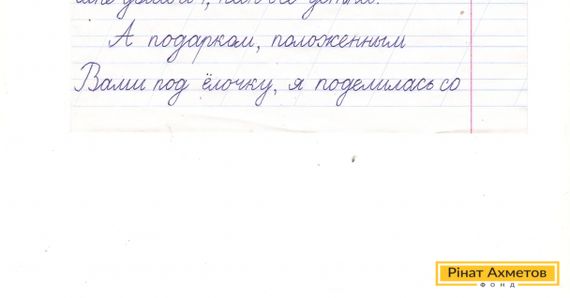 А подарком, положенным
Вами под ёлочку, я поделилась со
Рінат Ахметов
ФОНД